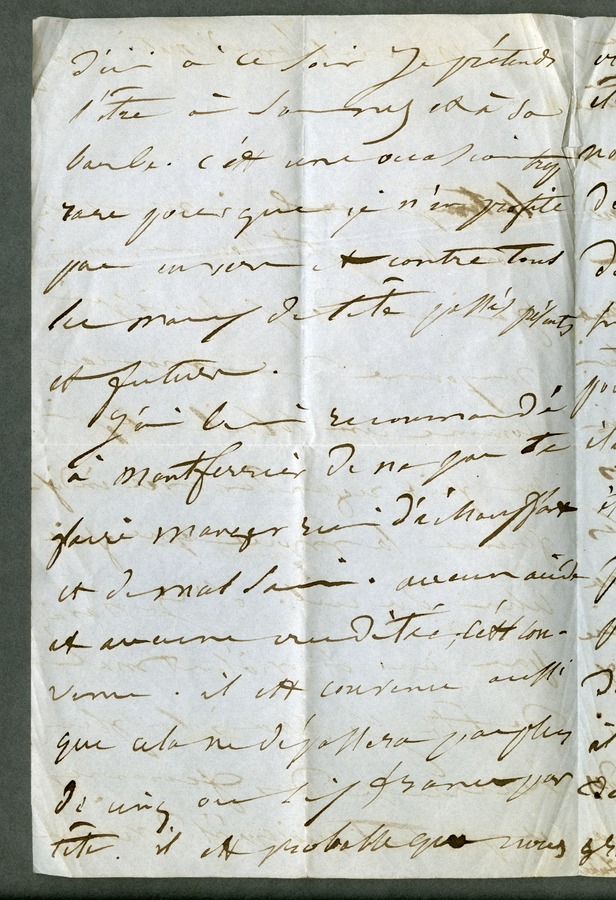 d'ici à ce soir Je prétends
l'être à son nez et à sa
barbe. c'est une occasion trop
rare pour que je n'en profite
pas envers et contre tous
les maux de tête passés présents
et futurs.
J'ai bien recommandé
à Montferrier de ne pas te
faire manger rien d'échauffant
et de mal sain. aucun acide
et aucune crudité, c'est con-
venu. il est convenu aussi
que cela ne dépassera pas plus
de cinq ou six francs par
tête. il est probable que nous